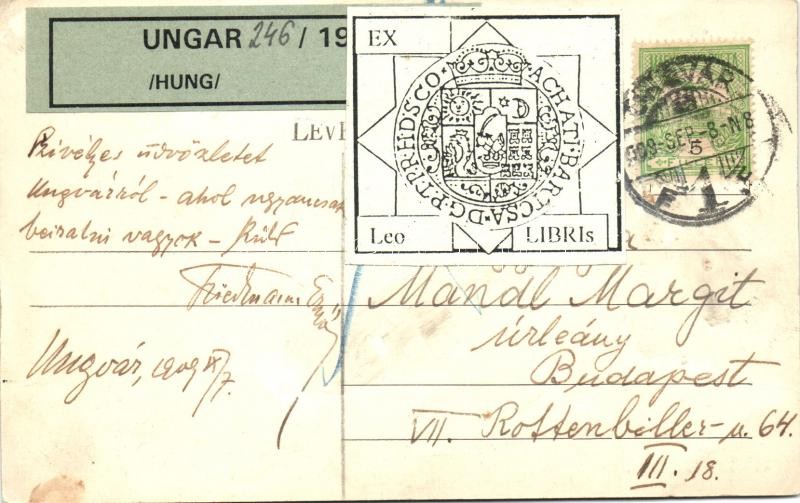 UNGAR 246 / 19
/HUNG/
EX
Leo
LIBRIs
ACHATI·BARTCSA·D·G·P·T·PR·HDSCO
LEVE
909 SEP. 8. N8
5
1
Szivélyes üdvözletet
Ungvárról - ahol ugyancsak
vagyok - Küld
Friedmann
Ungvár, 1909 IX/7.
Mandl Margit
úrleány
Budapest
VII. Rottenbiller-u. 64.
III. 18.